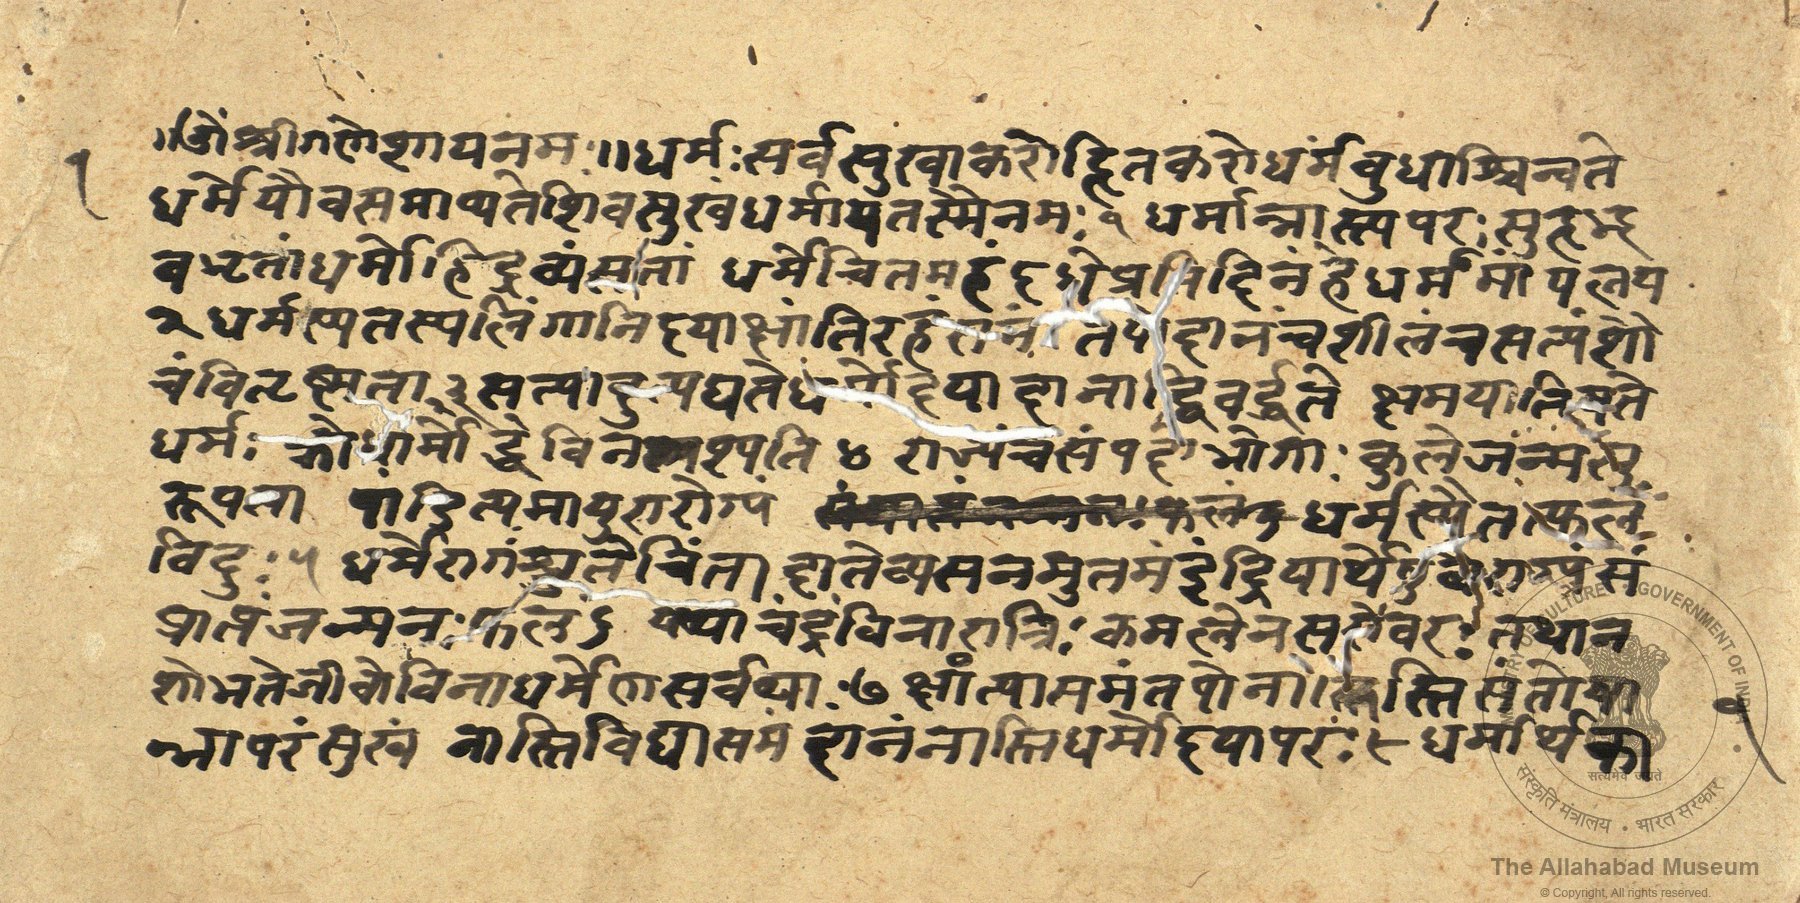 १
॥ओं श्रीगणेशायनमः॥धर्मः सर्वसुखाकरो हितकरो धर्मं वुधाश्चिन्वते
धर्मेणैवसमाप्यतेशिवसुखंधर्मायतस्मैनमः १ धर्मान्नास्त्यपरः सुहृद्भ
वभृतांधर्मो हिद्रव्यंसतां धर्मेचितमहंदधेप्रतिदिनंहेधर्ममांपालय
२ धर्मस्यतस्यलिंगानिदयाक्षांतिरहिंसनं तपोदानंचशीलंचसत्यंशौ
चंवितृष्णता ३ सत्यादुत्पद्यतेधर्मोदयादानाद्विवर्द्धते क्षमयातिष्ठते
धर्मः क्रोधार्मो द्वेविनश्यति ४ राज्यंचसंपदोभोगाः कुलेजंन्मसु
रूपता पांडित्यमायुरारोग्यं धर्मस्यैतत्फलं
विदुः ५ धर्मेरागंश्रुतेचिंता दानेव्यसनमुतमं इंद्रियार्थेषुवैराग्यंसं
प्राप्तंजन्मनः फलं ६ यथाचंद्रंविनारात्रिः कमलेनसरोवरः तथान
शोभतेजीवोविनाधर्मेणसर्वथा ७ क्षांत्यासमंतपोनास्तिसंतोषा
न्नापरंसुखं नास्तिविद्यासमंदानंनास्तिधर्मोदयापरः ८ धर्मार्थका
१
MINISTRY OF CULTURE GOVERNMENT OF INDIA
सत्यमेव जयते
संस्कृति मंत्रालय • भारत सरकार
The Allahabad Museum
© Copyright, All rights reserved.